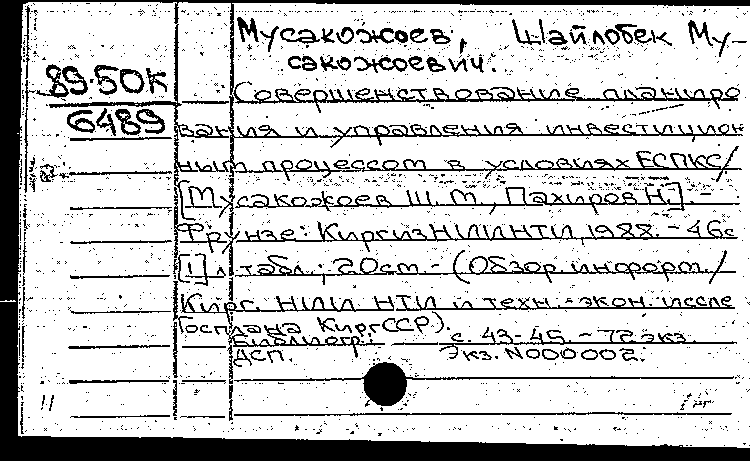 Мусакожоев, Шайлобек Му-
сакожоевич.
89-50К
6489
Совершенствование планиро
вания и управления инвестицион
ным процессом в условиях ЕСПКС/
[Мусакожоев Ш. М., Пахиров Н.]. -
Фрунзе: КиргизНИИНТИ, 1988. - 46с
[1] л. табл.; 20cm - (Обзор. информ./
Кирг. НИИ НТИ и техн.-экон. иссле
Госплана КиргССР).
Библиогр.: с. 43-45. - 72 экз.
ДСП. Экз. N000002.
11